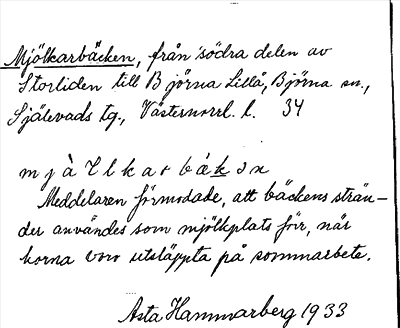 Mjölkarbäcken, från södra delen av
Storliden till Björna Lillå, Björna sn.,
Själevads tg., Västernorrl. l. 34
mjàlkarbäkən
Meddelaren förmodade, att bäckens strän-
der användes som mjölkplats förr, när
korna voro utsläppta på sommarbete.
Asta Hammarberg 1933